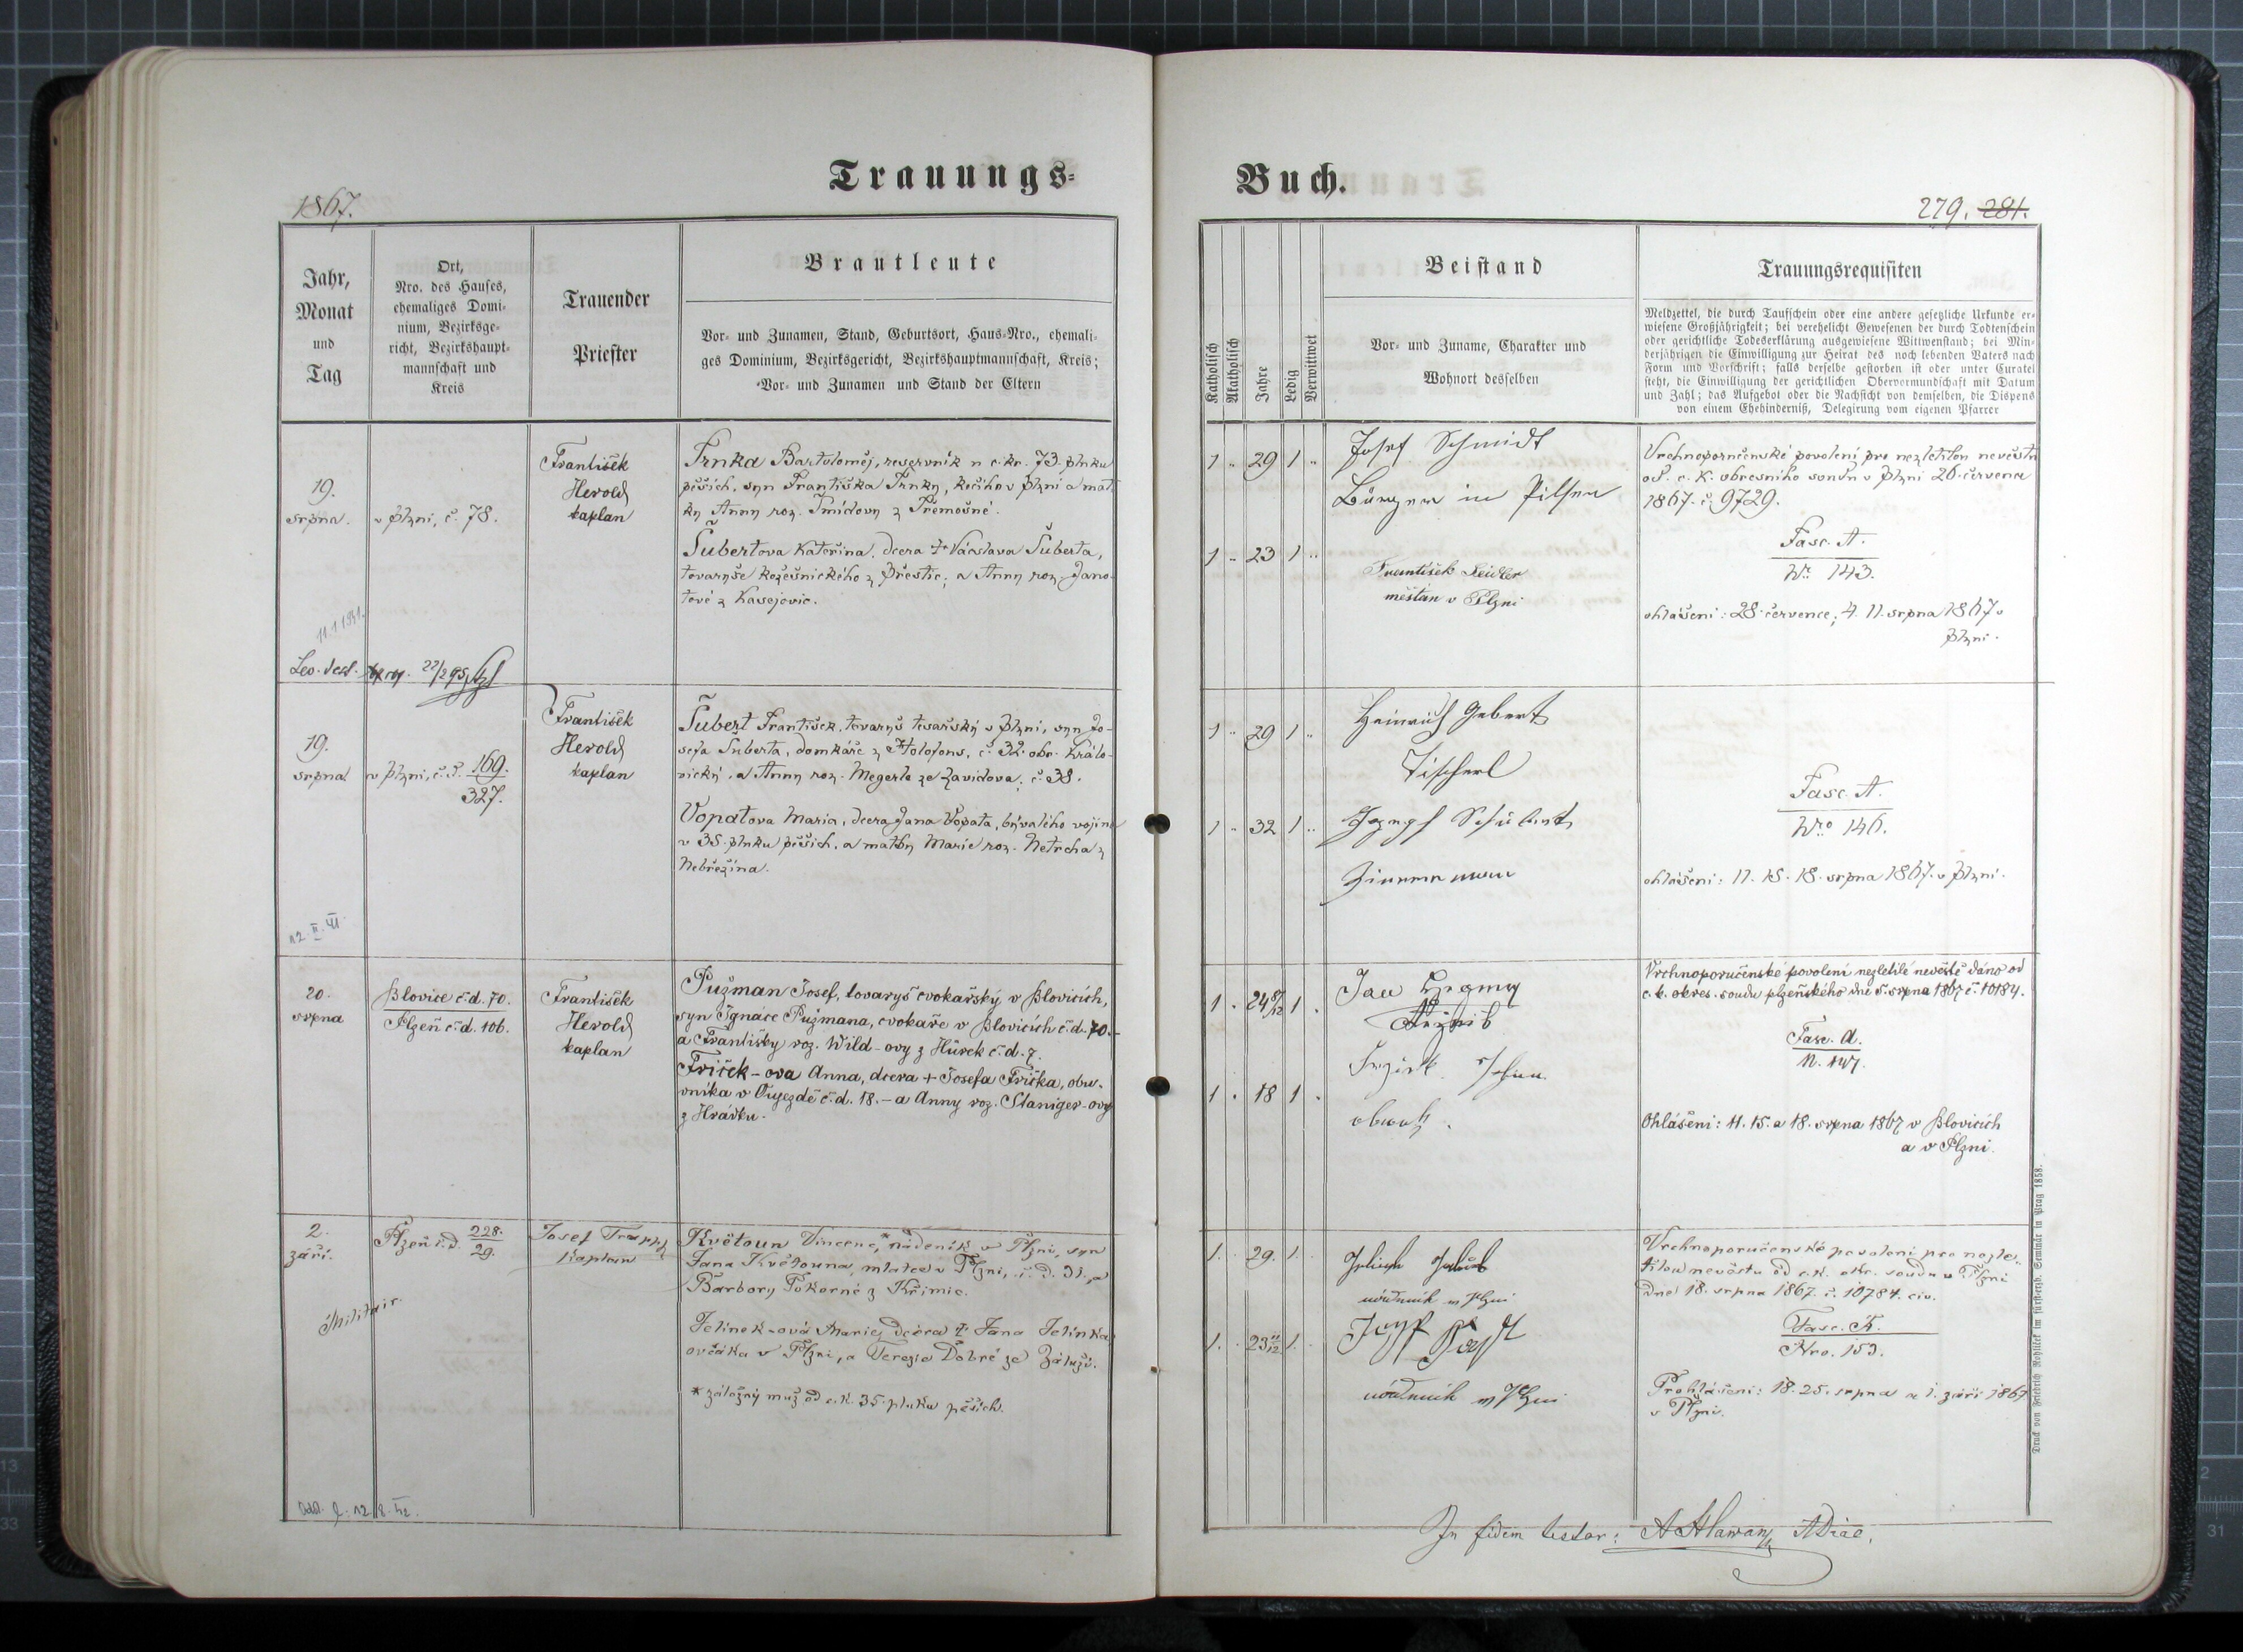 Trauungs-
Buch.
1867.
279. 281.
Jahr,
Monat
und
Tag
Ort,
Nro. des Hauses,
ehemaliges Domi-
nium, Bezirksge-
richt, Bezirkshaupt-
mannschaft und
Kreis
Trauender
Priester
Brautleute
Vor- und Zunamen, Stand, Geburtsort, Haus-Nro., ehemali-
ges Dominium, Bezirksgericht, Bezirkshauptmannschaft, Kreis;
Vor- und Zunamen und Stand der Eltern
Katholisch
Akatholisch
Jahre
Ledig
Verwittwet
Beistand
Vor- und Zuname, Charakter und
Wohnort desselben
Trauungsrequisiten
Meldzettel, die durch Taufschein oder eine andere gesetzliche Urkunde er-
wiesene Großjährigkeit; bei verehelicht Gewesenen der durch Todtenschein
oder gerichtliche Todeserklärung ausgewiesene Wittwenstand; bei Min-
derjährigen die Einwilligung zur Heirat des noch lebenden Vaters nach
Form und Vorschrift; falls derselbe gestorben ist oder unter Curatel
steht, die Einwilligung der gerichtlichen Obervormundschaft mit Datum
und Zahl; das Aufgebot oder die Nachsicht von demselben, die Dispens
von einem Ehehinderniß, Delegirung vom eigenen Pfarrer
19.
srpna.
v Plzni, č. 78.
František
Herold
kaplan
Trnka Bartoloměj, reservník u c. kr. 73. pluku
pěších, syn Františka Trnky, kočího v Plzni a mat-
ky Anny roz. Šmídovy z Třemošné.
Šubertova Kateřina, dcera † Václava Šuberta,
tovaryše kožešnického z Přeštic, a Anny roz. Jano-
tové z Kasejovic.
11.1.1941.
1 " 29 1 "
1 " 23 1 "
Josef Schmidt
Bürger in Pilsen
František Seidler
měštan v Plzni
Vrchnoporučenské povolení pro nezletilou nevěstu
od c. k. okresního soudu v Plzni 26. července
1867. č. 9729.
Fasc. A.
Nr. 143.
ohlášení: 28. července, 4. 11. srpna 1867 v
Plzni.
19.
srpna
v Plzni, č. d. 169.
327.
František
Herold
kaplan
Šubert František, tovaryš tesařský v Plzni, syn Jo-
sefa Šuberta, domkáře z Holofous, č. 32. okr. Králo-
vický, a Anny roz. Megerle ze Zavidova, č. 38.
Vopatova Maria, dcera Jana Vopata, bývalého vojína
v 35. pluku pěších, a matky Marie roz. Netrcha z
Nebřezina.
1 " 29 1 "
1 " 32 1 "
Heinrich Gebert
Tischerl
Joseph Schubert
Zimmermann
Fasc. A.
Nro 146.
ohlášení: 11. 15. 18. srpna 1867. v Plzni.
20.
srpna
Blovice č.d. 70.
Plzeň č. d. 106.
František
Herold
kaplan
Pužman Josef, tovaryš cvokařský v Blovicích,
syn Ignace Pužmana, cvokaře v Blovicích č.d. 70.-
a Františky roz. Wild-ovy z Hůrek č.d. 7.
Friček-ova Anna, dcera + Josefa Frička, obu-
vníka v Oujezdě č.d. 18.- a Anny roz. Staniger-ovy
z Hrádku.
1 . 24 5/12 1 .
1 . 18 1 .
Vrchnoporučenské povolení nezletilé nevěstě dáno od
c. k. okres. soudu plzeňského dne 5. srpna 1867 č. 10184.
Fasc. A.
N. 147.
Ohlášeni: 11. 15. a 18. srpna 1867 v Blovicích
a v Plzni.
2.
září.
Plzeň č. d. 228.
29.
Josef
kaplan
Květoun Vincenc,* nádeník v Plzni, syn
Jana Květouna, mlatce v Plzni, č. d. 31., a
Barbory Pokorné z Křimic.
Jelinek-ová Marie, dcera † Jana Jelínka,
ovčáka v Plzni, a Terezie Dobré ze Záluži.
* záložný muž od c. k. 35. pluku pěších.
Militair.
1. . 29. 1. .
1. . 23 11/12 1. .
nádeník v Plzni
Josef
nádeník v Plzni
Vrchnoporučenské povolení pro nezle-
tilou nevěstu od c. k. okr. soudu v Plzni
dne 18. srpna 1867. č. 10784. civ.
Fasc. A.
Nro. 153.
Prohlášení: 18. 25. srpna a 1. září 1867
v Plzni.
In fidem testor:
Druck von Friedrich Rohliček im fürsterzb. Seminär in Prag 1858.